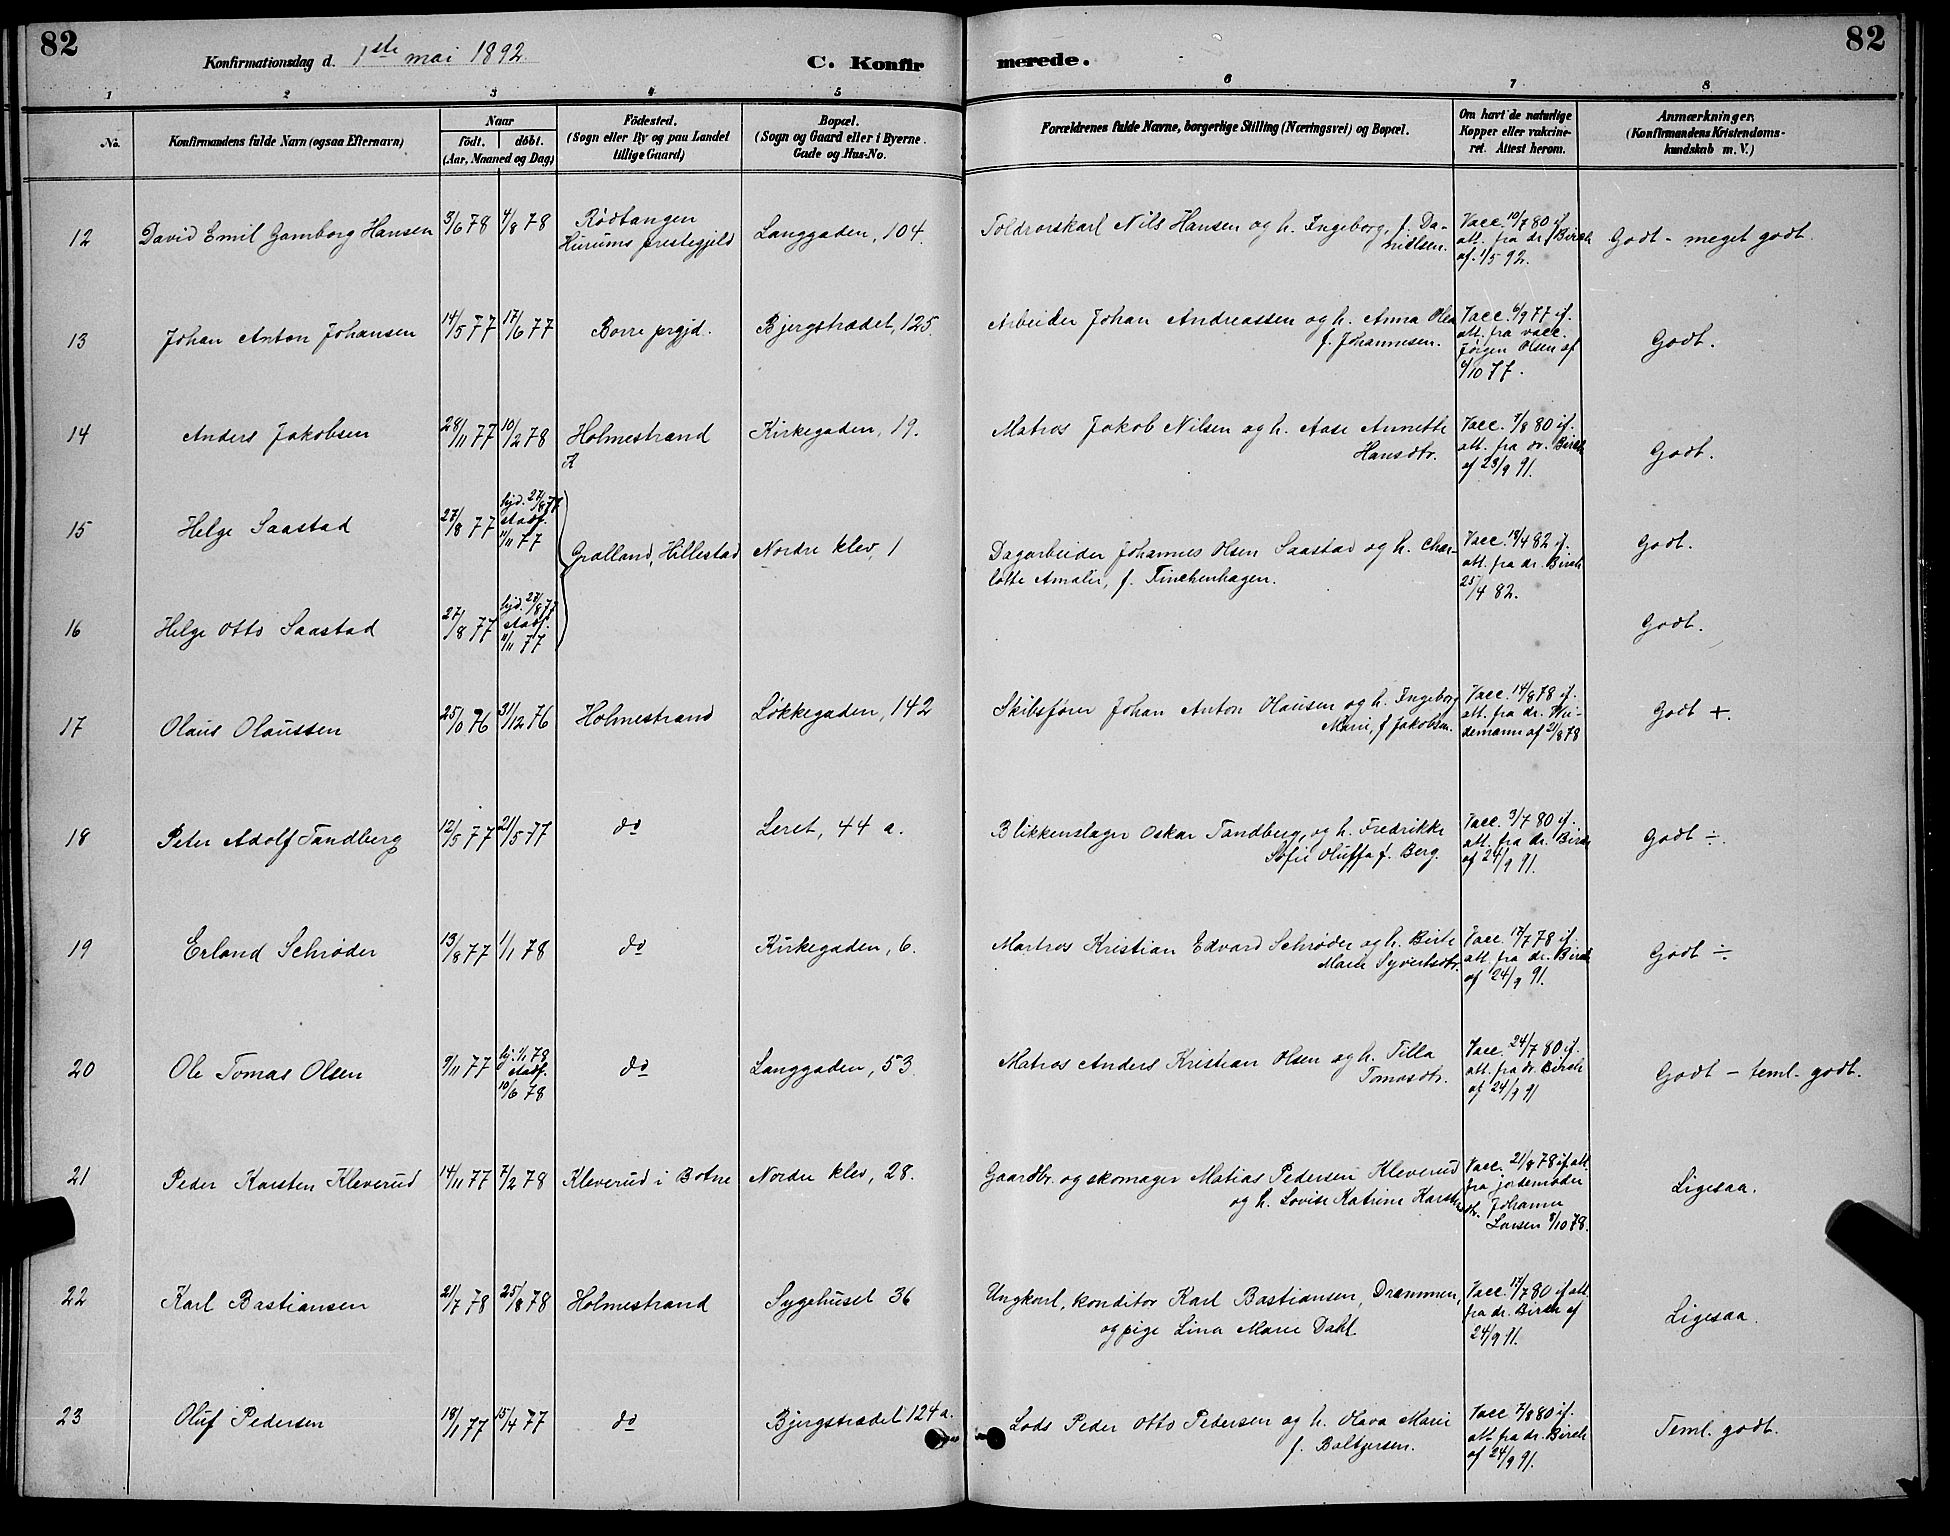 82
Konfirmationsdag d. 1ste mai 1892.
C. Konfirmerede.
82
1 2 3 4 5 6 7 8
No.
Konfirmandens fulde Navn (ogsaa Efternavn)
Naar
födt. döbt.
(Aar, Maaned og Dag)
Födested.
(Sogn eller By og paa Landet
tillige Gaard)
Bopæl.
(Sogn og Gaard eller i Byerne
Gade og Hus-No.
Forældrenes fulde Navne, borgerlige Stilling (Næringsvei) og Bopæl.
Om havt de naturlige
Kopper eller vakcine-
ret. Attest herom.
Anmærkninger,
(Konfirmandens Kristendoms-
kundskab m. V.)
12 David Emil Gamborg Hansen 3/6 78 4/8 78
Rödtangen
Hurums prestegjeld
Langgaden, 104.
Toldrorskarl Nils Hansen og h. Ingeborg, f. Da-
nielsen.
Vacc. 10/7 80 if.
att. fra dr. Birch
af 1/5 92.
Godt - meget godt.
13 Johan Anton Johansen 14/5 77 17/6 77 Borre prgjd. Bjergstrædet, 125.
Arbeider Johan Andreassen og h. Anna Olea
f. Johannesen.
Vacc. 6/9 77 if.
att. fra vacc.
Jörgen Olsen af
4/10 77.
Godt.
14 Anders Jakobsen 28/11 77 10/2 78 Holmestrand Kirkegaden, 19.
Matros Jakob Nilsen og h. Aase Annette
Hansdtr.
Vacc. 7/8 80 if.
att. fra dr. Birch
af 23/9 91.
Godt.
15 Helge Saastad 27/8 77
hjd. 27/8 77
stadf.
11/11 77
Gralland, Hillestad Nordre klev, 1
Dagarbeider Johannes Olsen Saastad og h. Char-
lotte Amalie, f. Finchenhagen.
Vacc. 18/4 82 if.
att. fra dr. Birch
25/4 82.
Godt.
16 Helge Otto Saastad 27/8 77
hjd. 27/8 77
stadf.
11/11 77
Godt.
17 Olaus Olaussen 25/10 76 31/12 76 Holmestrand Løkkegaden, 142
Skibsfører Johan Anton Olausen og h. Ingeborg
Marie, f. Jakobsen.
Vacc. 14/8 78 if.
att. fra dr. Wi-
demann af 21/8 78
Godt +.
18 Peter Adolf Tandberg 12/5 77 21/5 77 do Leret, 44 a.
Blikkenslager Oskar Tandberg, og h. Fredrikke
Sofie Oluffa f. Berg.
Vacc. 3/7 80 if.
att. fra dr. Birch
af 24/9 91.
Godt ÷.
19 Erland Schrøder 13/8 77 1/1 78 do Kirkegaden, 6.
Martros Kristian Edvard Schrøder og h. Birte
Marie Syvertsdtr.
Vacc. 17/7 78 if.
att. fra dr. Birch
af 24/9 91.
Godt ÷.
20 Ole Tomas Olsen 9/11 77
hj. 1/1 78
stadf.
10/6 78
do Langgaden, 53.
Matros Anders Kristian Olsen og h. Tilla
Tomasdtr.
Vacc. 24/7 80 if.
att. fra dr. Birch
af 24/9 91
Godt - teml. godt.
21 Peder Karsten Kleverud 14/11 77 7/2 78 Kleverud i Botne Nordre klev, 28.
Gaardbr. og skomager Matias Pedersen Kleverud
og h. Lovise Katrine Karstens
dtr.
Vacc. 21/8 78 if. att.
fra jordemoder
Johanne
Larsen 8/10 78.
Ligesaa.
22 Karl Bastiansen 21/7 78 25/8 78 Holmestrand Sygehuset 36
Ungkarl, konditor Karl Bastiansen, Drammen,
og pige Lina Marie Dahl.
Vacc. 17/7 80 if att.
fra dr. Birch af
24/9 91.
Ligesaa.
23 Oluf Pedersen 18/1 77 15/4 77 do Bjergstrædet 124 a.
Lods Peder Otto Pedersen og h. Olava Marie
f. Baltzersen.
Vacc 7/8 80 if.
att fra dr. Birch
af 24/9 91.
Teml. godt.